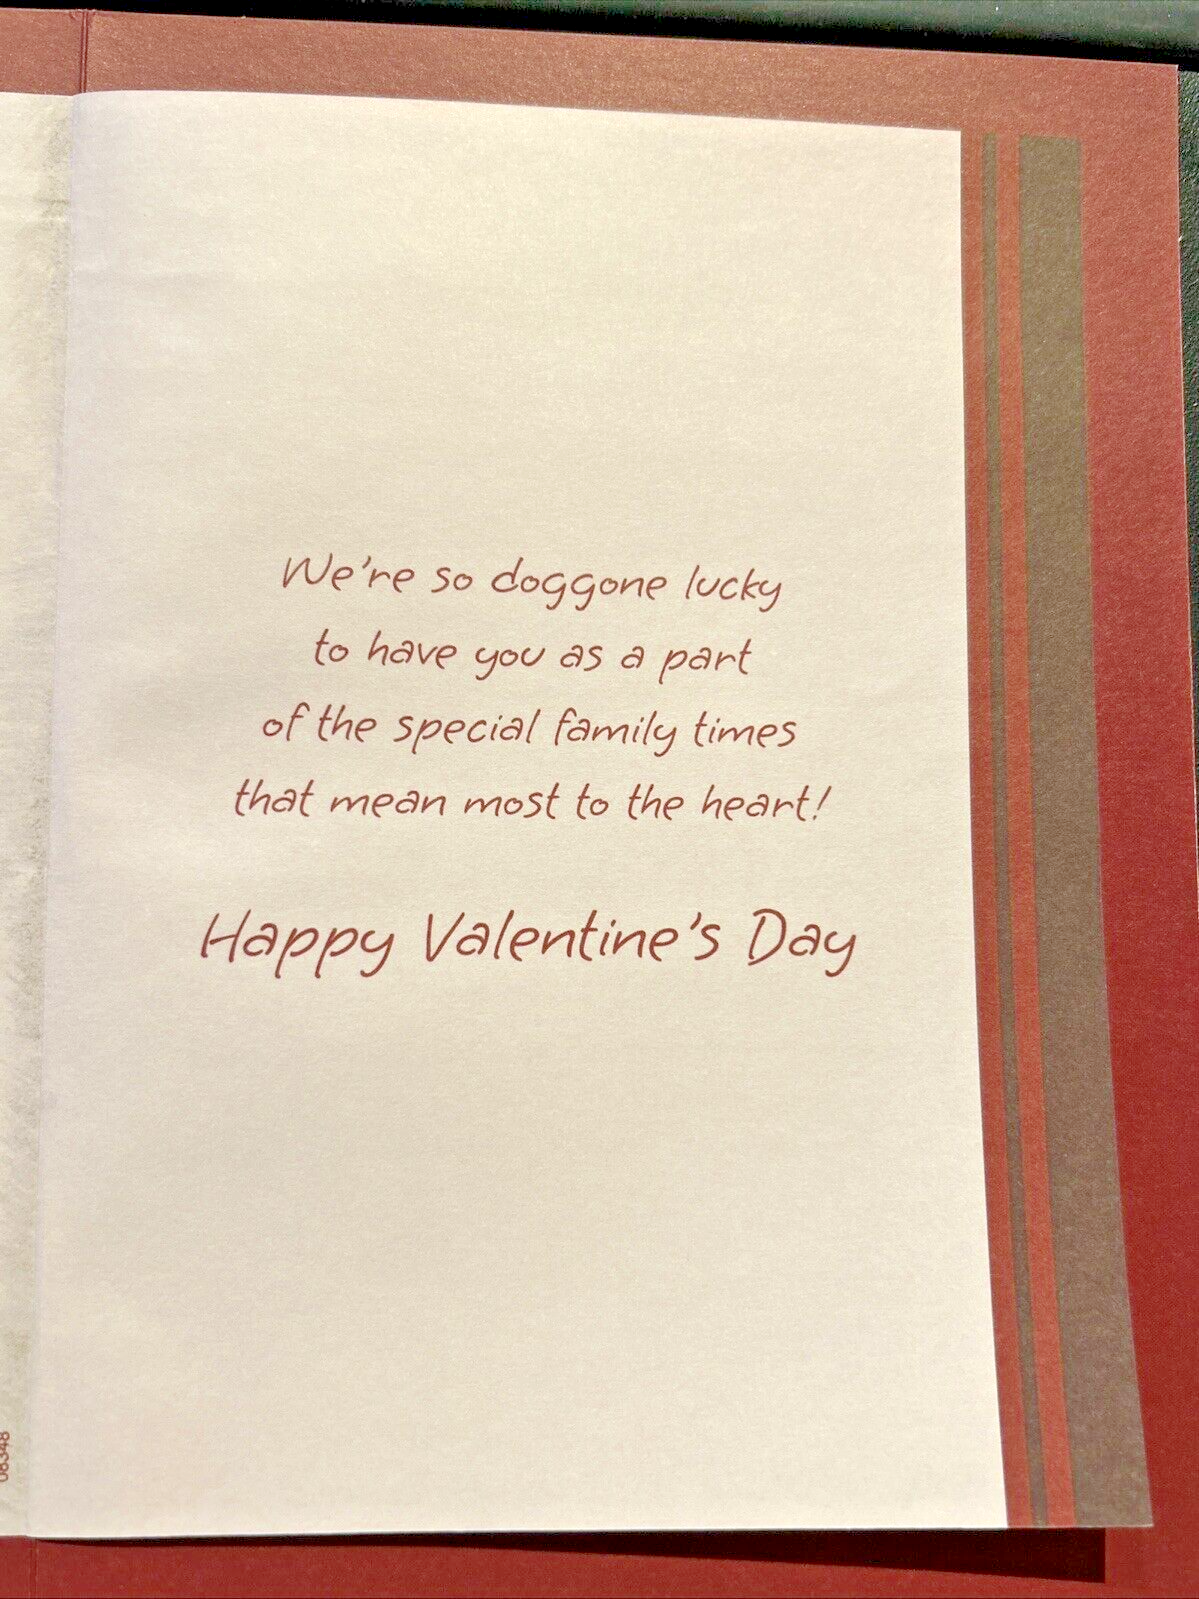 We're so doggone lucky
to have you as a part
of the special family times
that mean most to the heart!
Happy Valentine's Day
08348